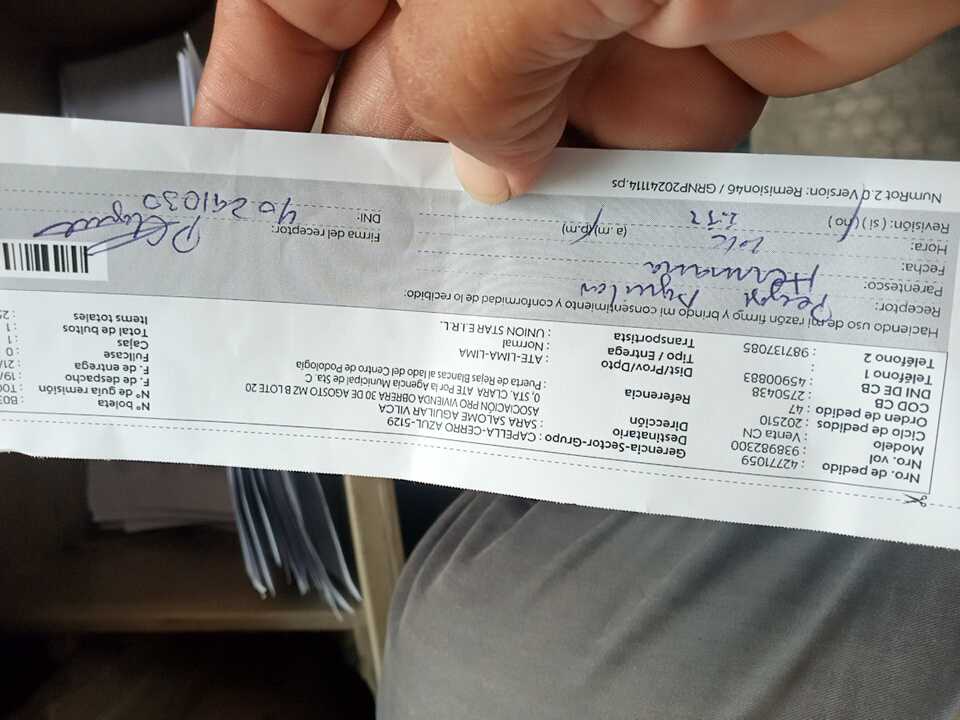 Nro. de pedido : 42771059
Nro. vol : 938982300
Modelo : Venta CN
Ciclo de pedidos : 202510
Orden de pedido : 47
COD CB : 2750438
DNI DE CB : 45900883
Teléfono 1
Teléfono 2 : 987137085
Gerencia-Sector-Grupo : CAPELLA-CERRO AZUL-5129
Destinatario : SARA SALOME AGUILAR VILCA
Dirección : ASOCIACIÓN PRO VIVIENDA OBRERA 30 DE AGOSTO MZ B LOTE 20
0, STA. CLARA ATE Por la Agencia Municipal de Sta. C
Referencia : Puerta de Rejas Blancas al lado del Centro de Podología
Dist/Prov/Dpto : ATE-LIMA-LIMA
Tipo / Entrega : Normal
Transportista : UNION STAR E.I.R.L.
N° boleta : B03
N° de guía de remisión : T00
F. de despacho : 19/
F. de entrega : 21/
Fullcase : 0
Cajas : 1
Total de bultos : 1
Items totales : 25
Haciendo uso de mi razón firmo y brindo mi consentimiento y conformidad de lo recibido:
Receptor: Aguilar
Parentesco: Hermana
Fecha:
Hora: (a.m) (p.m)
Revisión: ( si ) ( no )
Firma del receptor:
DNI: 40241030
NumRot 2.0 Version: Remision46 / GRNP20241114.ps